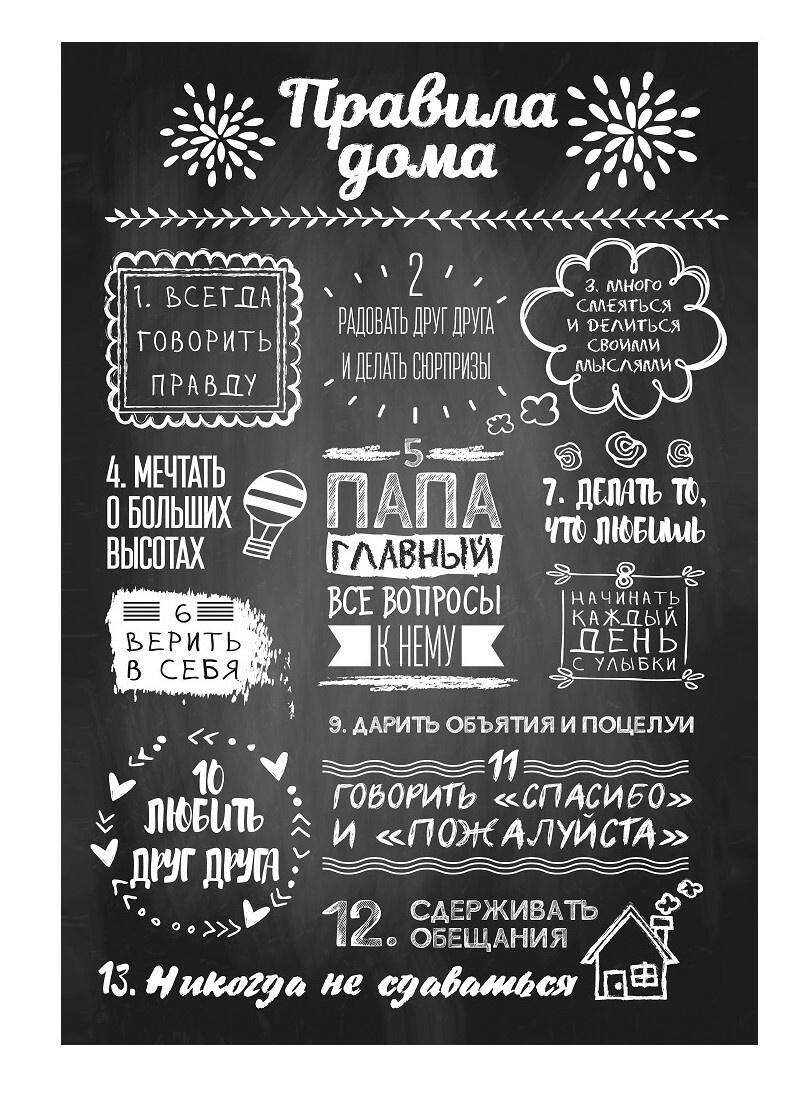 Правила
дома
1. ВСЕГДА
ГОВОРИТЬ
ПРАВДУ
2
РАДОВАТЬ ДРУГ ДРУГА
И ДЕЛАТЬ СЮРПРИЗЫ
3. МНОГО
СМЕЯТЬСЯ
И ДЕЛИТЬСЯ
СВОИМИ
МЫСЛЯМИ
4. МЕЧТАТЬ
О БОЛЬШИХ
ВЫСОТАХ
5
ПАПА
ГЛАВНЫЙ
ВСЕ ВОПРОСЫ
К НЕМУ
6
ВЕРИТЬ
В СЕБЯ
7. ДЕЛАТЬ ТО,
ЧТО ЛЮБИШЬ
8
НАЧИНАТЬ
КАЖДЫЙ
ДЕНЬ
С УЛЫБКИ
9. ДАРИТЬ ОБЪЯТИЯ И ПОЦЕЛУИ
10
ЛЮБИТЬ
ДРУГ ДРУГА
11
ГОВОРИТЬ «СПАСИБО»
И «ПОЖАЛУЙСТА»
12. СДЕРЖИВАТЬ
ОБЕЩАНИЯ
13. Никогда не сдаваться